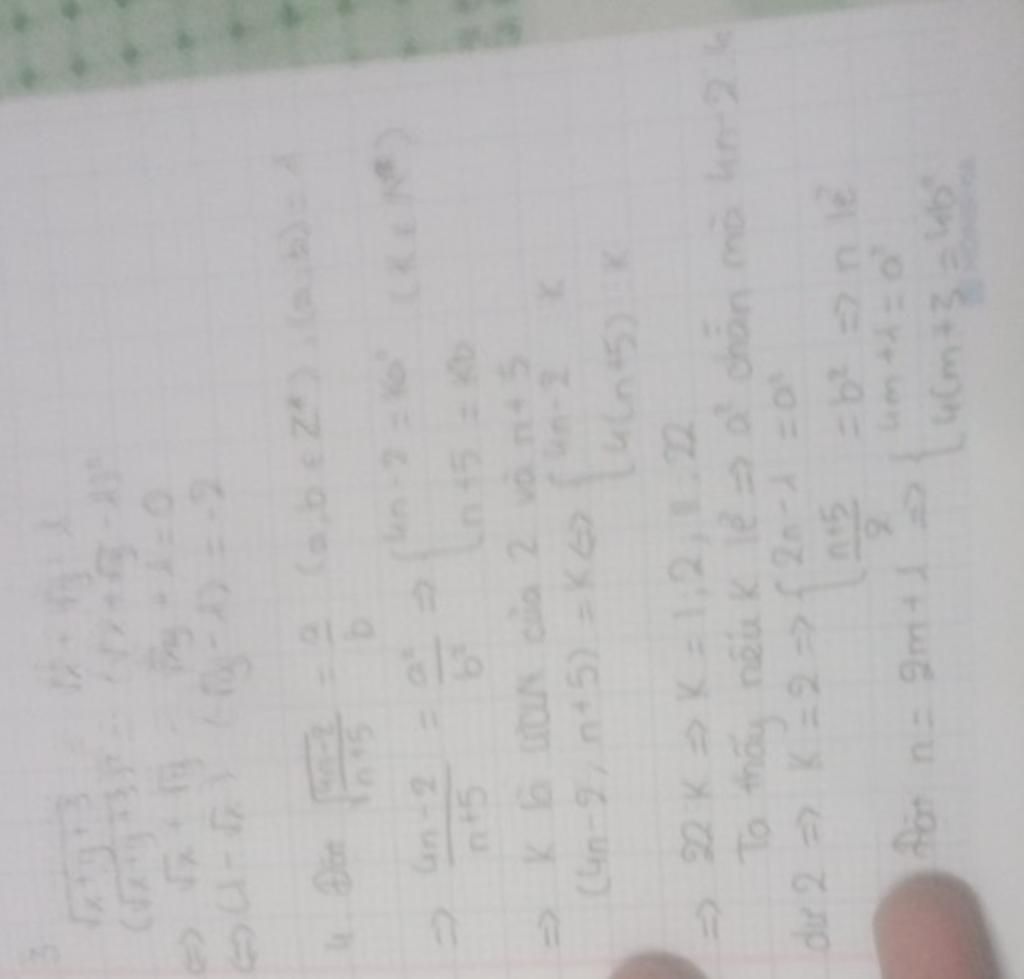 3
√(x+y+3) = √x + √y - 1
(√(x+y+3))² = (√x + √y - 1)²
⇔ √x + √y - √xy + 1 = 0
⇔ (1 - √x) (√y - 1) = -2
4. Đặt √((4n-2)/(n+5)) = a/b (a, b ∈ Z*), (a,b) = 1
⇒ (4n-2)/(n+5) = a²/b² ⇒ { 4n-2 = ka² (k ∈ N*)
{ n+5 = kb²
⇒ K là của 2 và n+5
(4n-2, n+5) = K ⇔ { 4n-2 ⋮ K
{ 4(n+5) ⋮ K
⇒ 22 K ⇒ K = 1, 2, 11, 22
Ta thấy nếu K lẻ ⇒ a² chẵn mà 4n-2
dư 2 ⇒ K = 2 ⇒ { 2n-1 = a²
{ (n+5)/2 = b² ⇒ n lẻ
Đặt n = 2m+1 ⇒ { 4m+1 = a²
{ 4(m+3) = 4b²